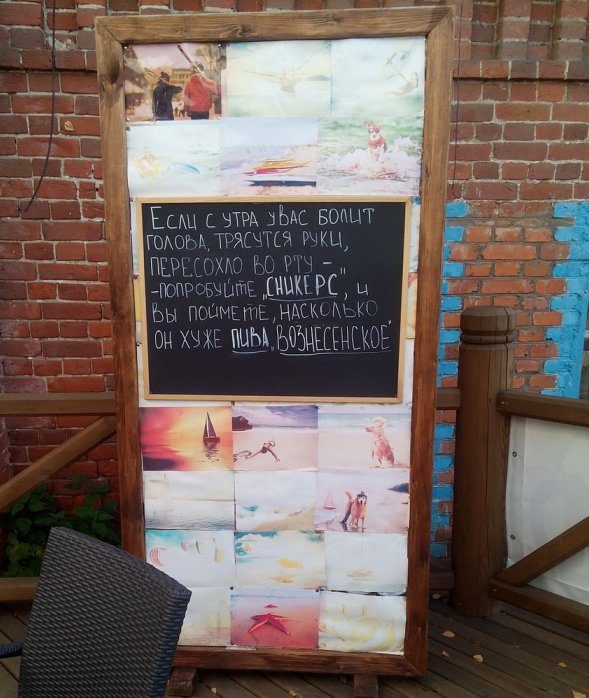 ЕСЛИ С УТРА У ВАС БОЛИТ
ГОЛОВА, ТРЯСУТСЯ РУКИ,
ПЕРЕСОХЛО ВО РТУ -
-ПОПРОБУЙТЕ „СНИКЕРС", И
ВЫ ПОЙМЕТЕ, НАСКОЛЬКО
ОН ХУЖЕ ПИВА „ВОЗНЕСЕНСКОЕ"